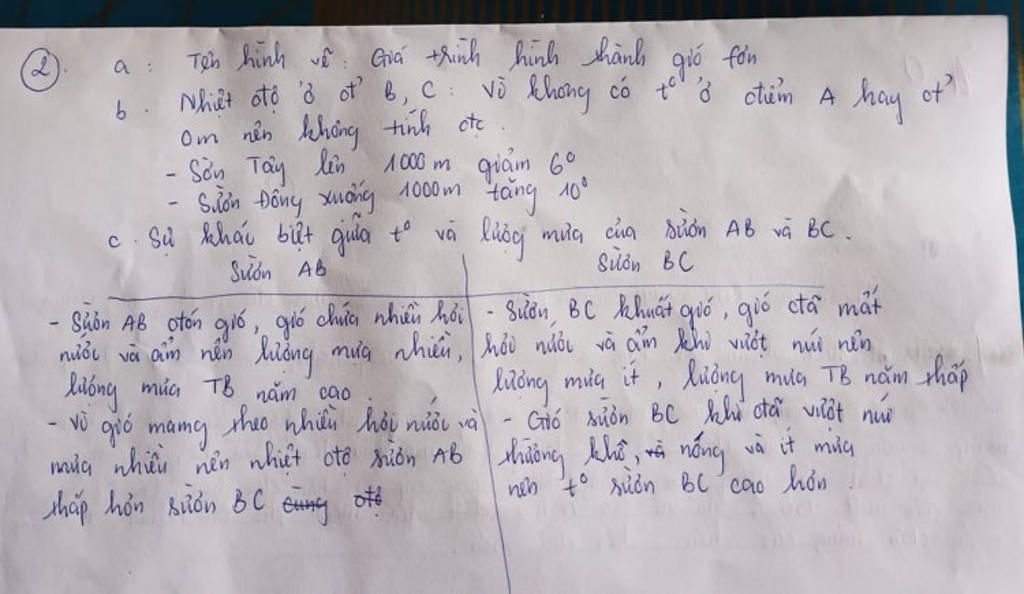 2. a: Tên hình vẽ: Quá trình hình thành gió fơn
b. Nhiệt độ ở ở B, C: Vì không có t° ở điểm A hay ở
0m nên không tính đc.
- Sờn Tây lên 1000m giảm 6°
- Sườn Đông xuống 1000m tăng 10°
c. Sự khác biệt giữa t° và lượng mưa của sườn AB và BC.
Sườn AB
Sườn BC
- Sườn AB đón gió, gió chứa nhiều hơi
nước và ẩm nên lượng mưa nhiều,
lượng mưa TB năm cao
- Vì gió mang theo nhiều hơi nước và
mưa nhiều nên nhiệt độ sườn AB
thấp hơn sườn BC
- Sườn BC khuất gió, gió đã mất
hơi nước và ẩm khi vượt núi nên
lượng mưa ít, lượng mưa TB năm thấp
- Gió sườn BC khi đã vượt núi
thường khô, nóng và ít mưa
nên t° sườn BC cao hơn